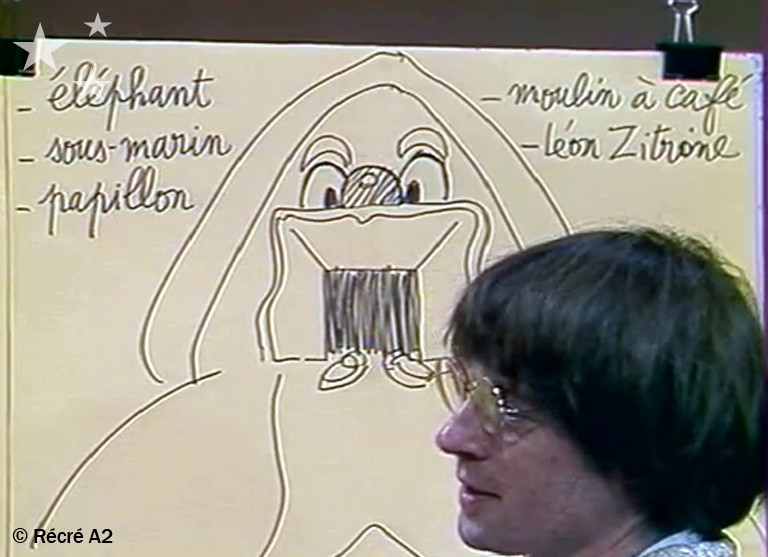 - éléphant
- sous-marin
- papillon
- moulin à café
- léon Zitrone
© Récré A2